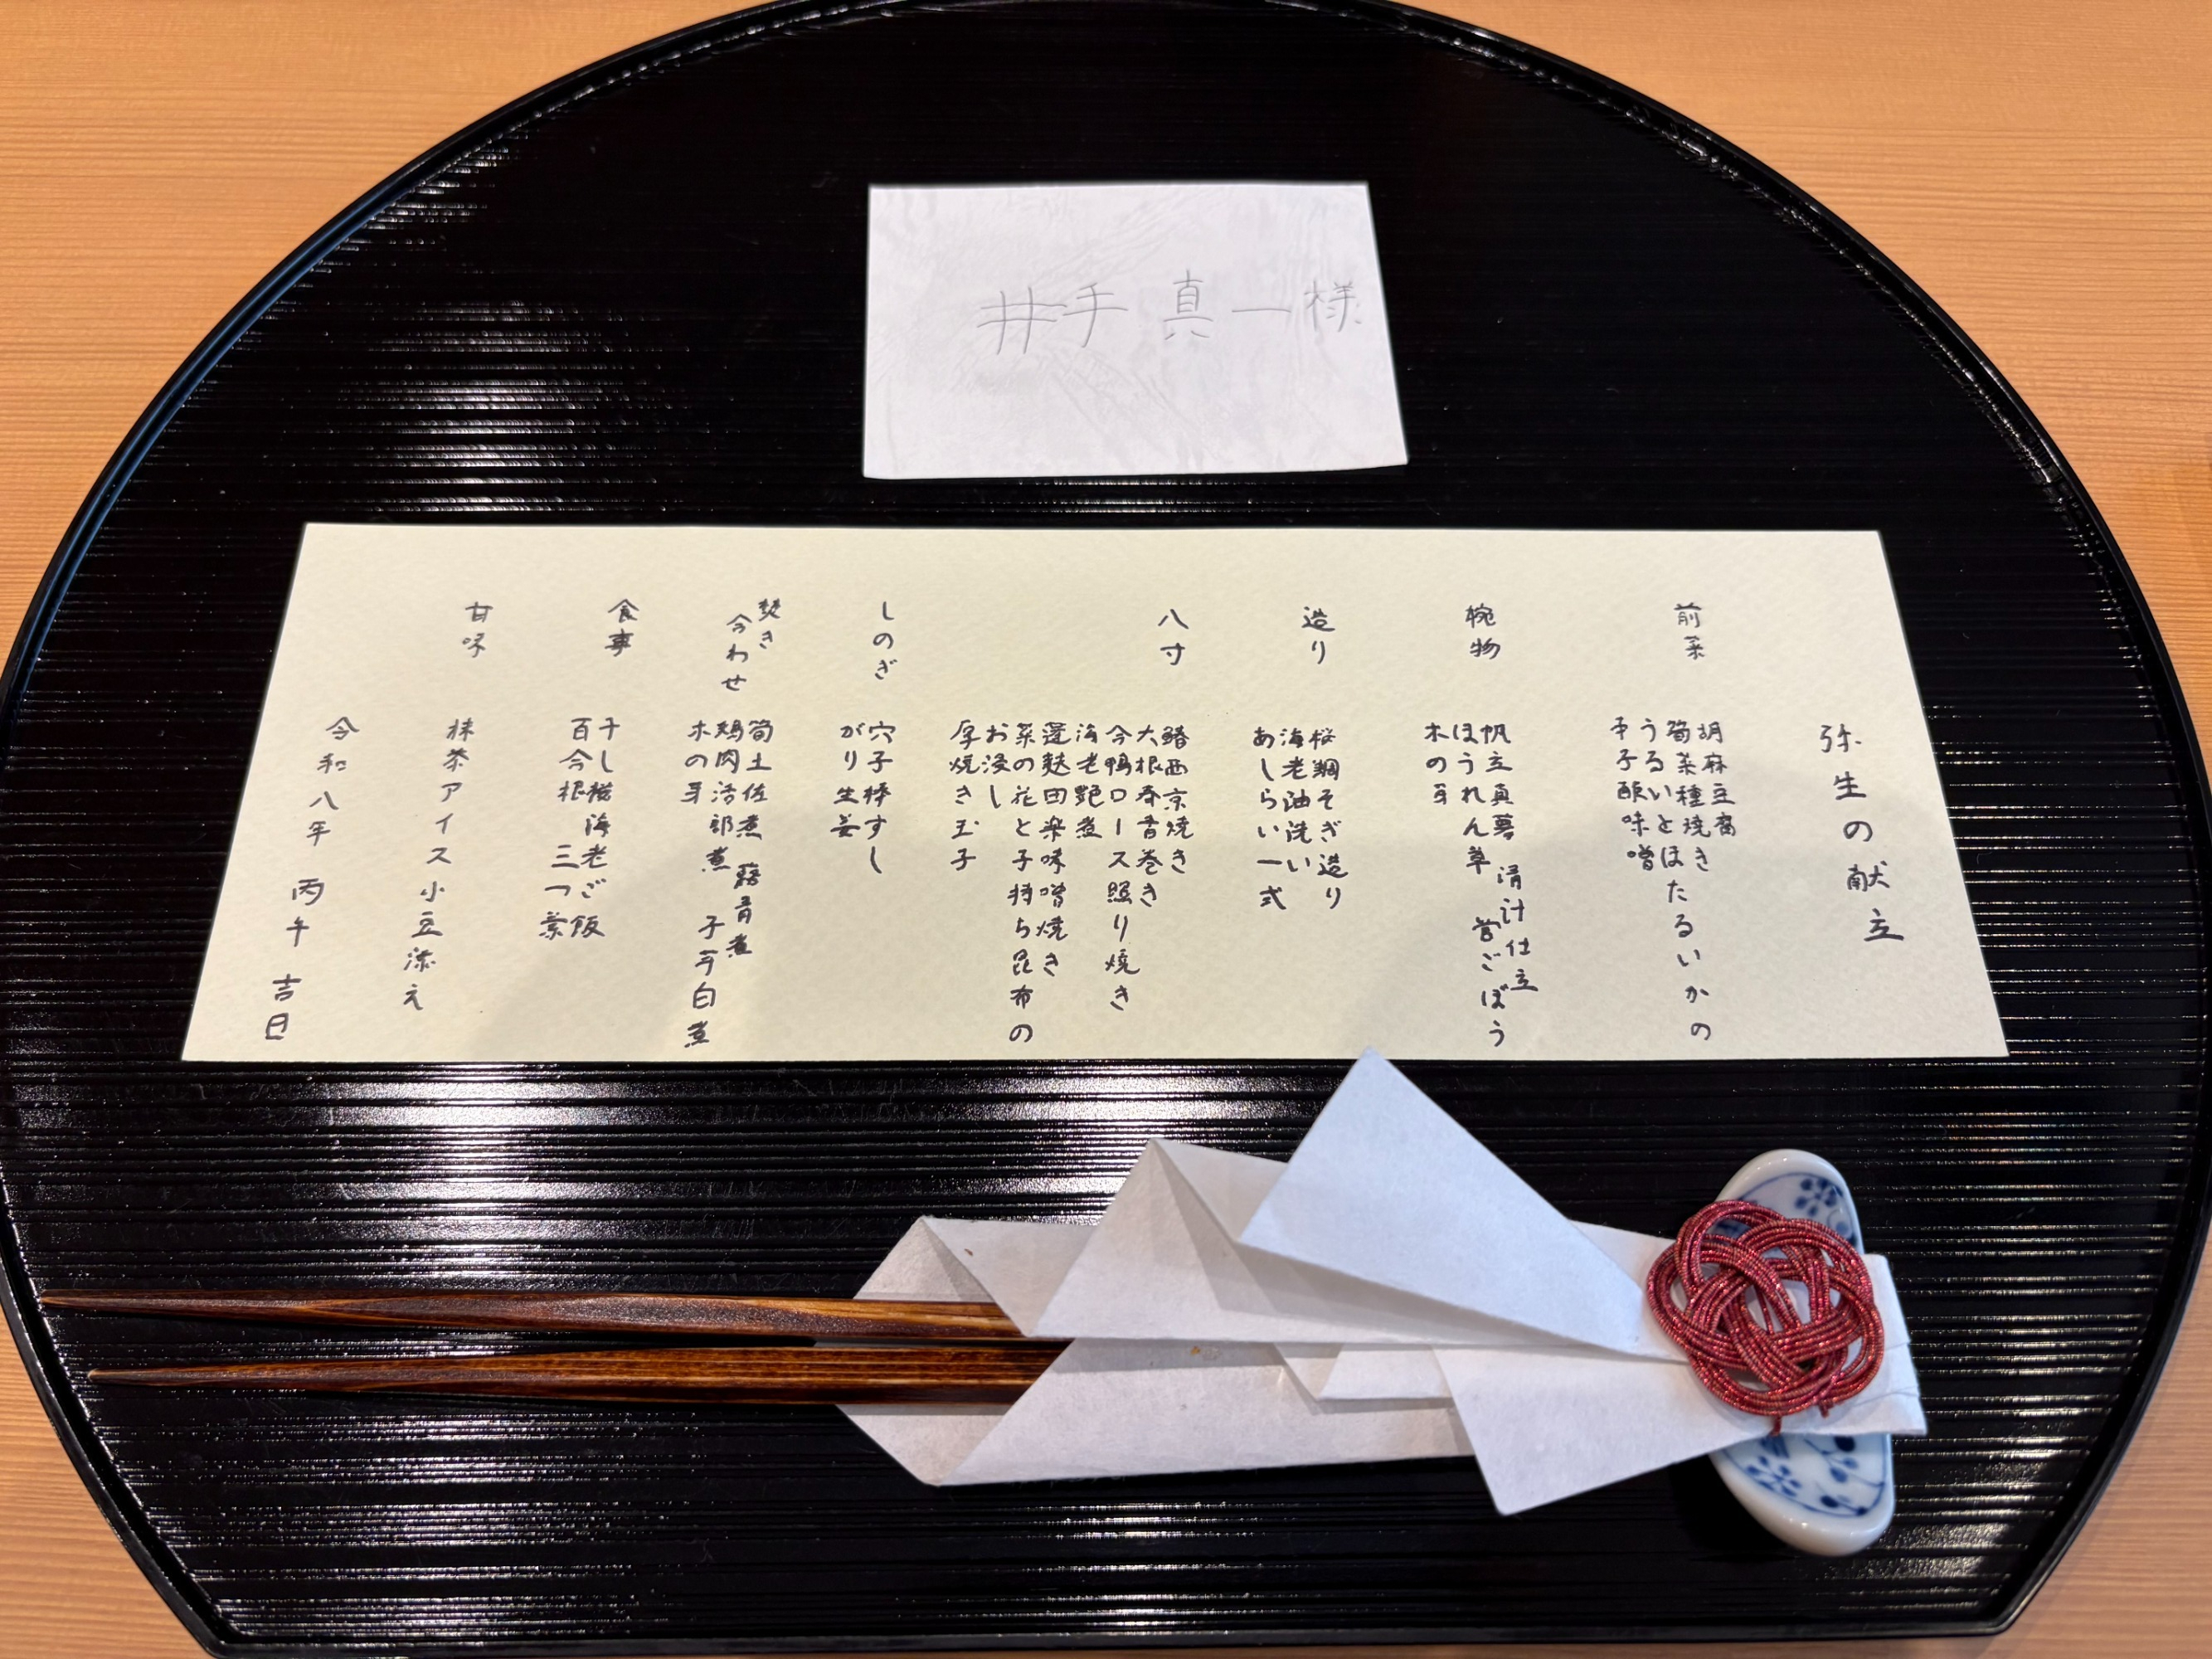 井手 真一様
弥生の献立
前菜
胡麻豆腐
筍菜種焼き
うるいとほたるいかの
辛子酢味噌
椀物
帆立真薯 清汁仕立
ほうれん草 管ごぼう
木の芽
造り
桜鯛そぎ造り
海老油洗い
あしらい一式
八寸
鰆西京焼き
大根春香巻き
合鴨ロース照り焼き
海老艶煮
蓬麩田楽味噌焼き
菜の花と子持ち昆布の
お浸し
厚焼き玉子
しのぎ
穴子棒すし
がり生姜
焚き
合わせ
筍土佐煮 蕗青煮
鶏肉治部煮 子芋白煮
木の芽
食事
干し桜海老ご飯
百合根 三つ葉
甘味
抹茶アイス小豆添え
令和八年 丙午 吉日